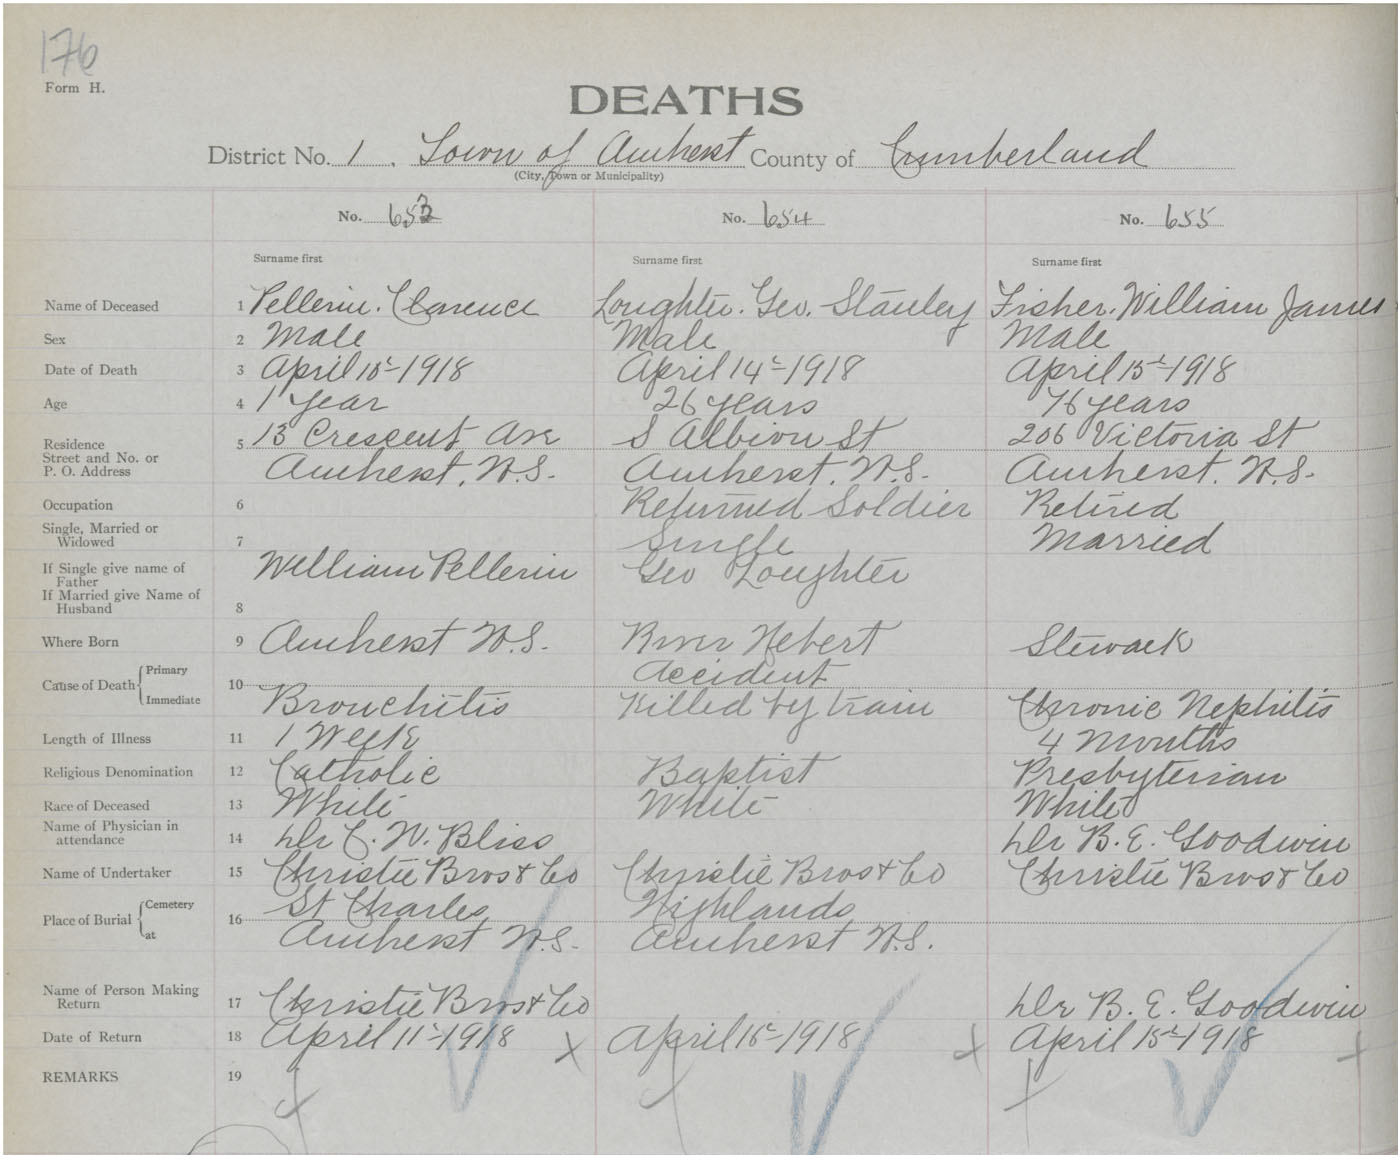 176
Form H.
DEATHS
District No. 1. Town of Amherst County of Cumberland
(City, Town or Municipality)
No. 653 No. 654 No. 655
Surname first Surname first Surname first
Name of Deceased 1 Pellerin. Clarence Loughter. Geo. Stanley Fisher. William James
Sex 2 Male Male Male
Date of Death 3 April 10th-1918 April 14th-1918 April 15th-1918
Age 4 1 Year 26 years 76 years
Residence 5 13 Crescent Ave S Albion St 206 Victoria St
Street and No. or
P. O. Address Amherst, N.S. Amherst, N.S. Amherst. N.S.
Occupation 6 Returned Soldier Retired
Single, Married or
Widowed 7 Single Married
If Single give name of
Father William Pellerin Geo Loughter
If Married give Name of
Husband 8
Where Born 9 Amherst N.S. River Hebert Stewack
Cause of Death Primary 10 Accident
Immediate Bronchitis Killed by train Chronic Nephitis
Length of Illness 11 1 Week 4 Months
Religious Denomination 12 Catholic Baptist Presbyterian
Race of Deceased 13 White White White
Name of Physician in
attendance 14 Dr C. W. Bliss Dr B. E. Goodwin
Name of Undertaker 15 Christie Bros & Co Christie Bros & Co Christie Bros & Co
Place of Burial Cemetery 16 St Charles Highlands
at Amherst N.S. Amherst N.S.
Name of Person Making
Return 17 Christie Bros & Co Dr B. E. Goodwin
Date of Return 18 April 11th-1918 X April 16th-1918 X April 15th-1918 X
REMARKS 19 X X X